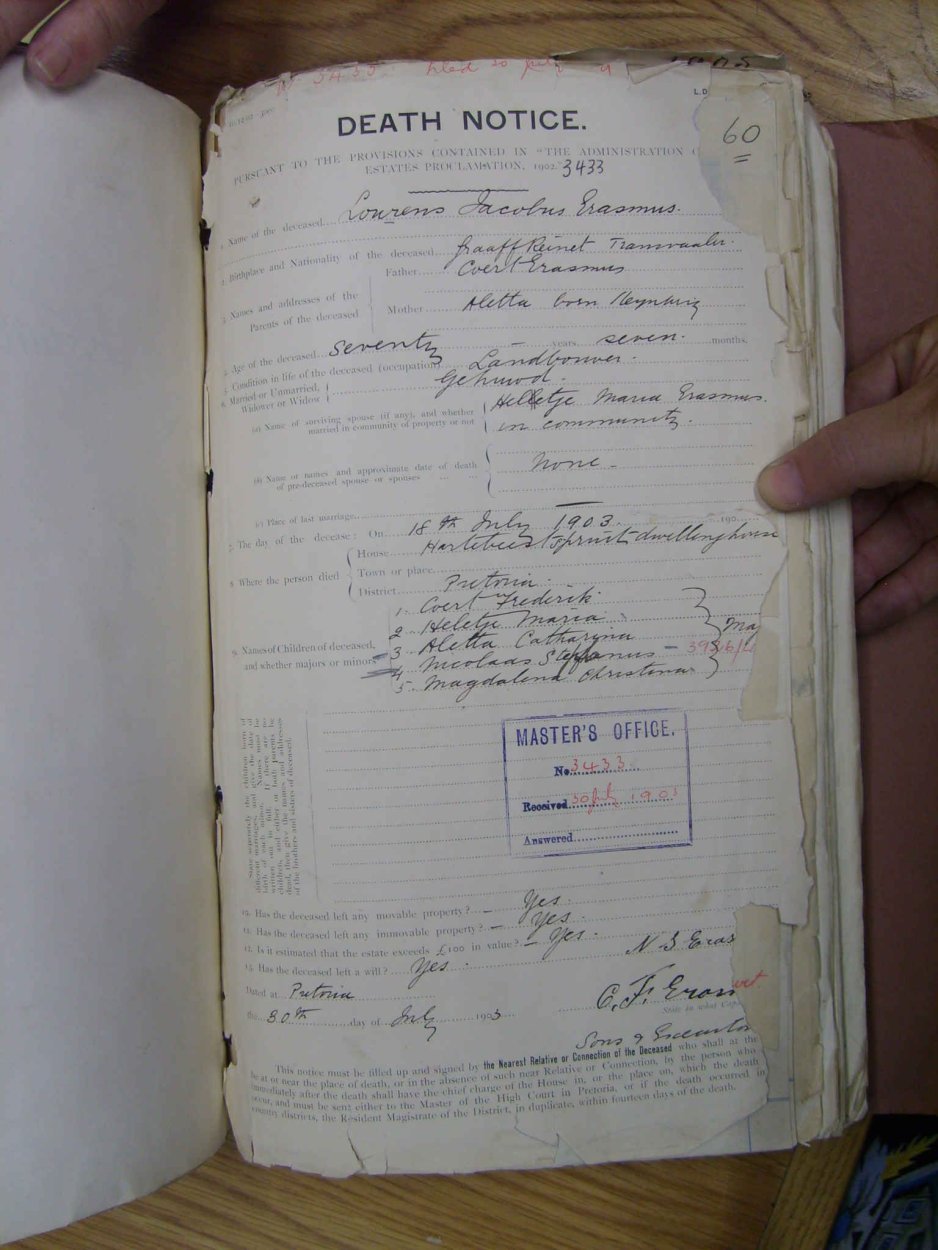 3433 filed 30 July
1905
L.D.
60
DEATH NOTICE.
PURSUANT TO THE PROVISIONS CONTAINED IN "THE ADMINISTRATION
ESTATES PROCLAMATION, 1902." 3433
1. Name of the deceased Lourens Jacobus Erasmus.
2. Birthplace and Nationality of the deceased Graaff Reinet Transvaaler.
3. Names and addresses of the Parents of the deceased
Father Coert Erasmus
Mother Aletta born Heynburg
4. Age of the deceased Seventy years, seven months.
5. Condition in life of the deceased (occupation) Landbouwer.
6. Married or Unmarried, Widower or Widow Gehuwd.
(a) Name of surviving spouse (if any), and whether married in community of property or not
Helletje Maria Erasmus.
in community.
(b) Name or names and approximate date of death of pre-deceased spouse or spouses
None
(c) Place of last marriage
7. The day of the decease: On 18th July 1903. 190
8. Where the person died
House Hartebeestspruit dwellinghouse
Town or place
District Pretoria.
9. Names of Children of deceased, and whether majors or minors
1. Coert Frederik
2 Heletje Maria
3 Aletta Catharyna
4 Nicolaas Stefanus
5. Magdalena Christina
Maj
State separately the children born of different marriages, and give the date of birth of each minor. Names must be written out in full. If there are no children, and either or both parents be dead, then give the names and addresses of the brothers and sisters of deceased.
MASTER'S OFFICE.
No. 3433
Received 30 July 1903
Answered
10. Has the deceased left any movable property? — Yes.
11. Has the deceased left any immovable property? — Yes.
12. Is it estimated that the estate exceeds £100 in value? — Yes.
13. Has the deceased left a will? Yes.
N S Eras
Dated at Pretoria
C. F. Eras
the 30th day of July 1903
State in what Cap
Sons & Executor
This notice must be filled up and signed by the Nearest Relative or Connection of the Deceased who shall at the
be at or near the place of death, or in the absence of such near Relative or Connection, by the person who
immediately after the death shall have the chief charge of the House in, or the place on, which the death
occur, and must be sent either to the Master of the High Court in Pretoria, or if the death occurred in
country districts, the Resident Magistrate of the District, in duplicate, within fourteen days of the death.